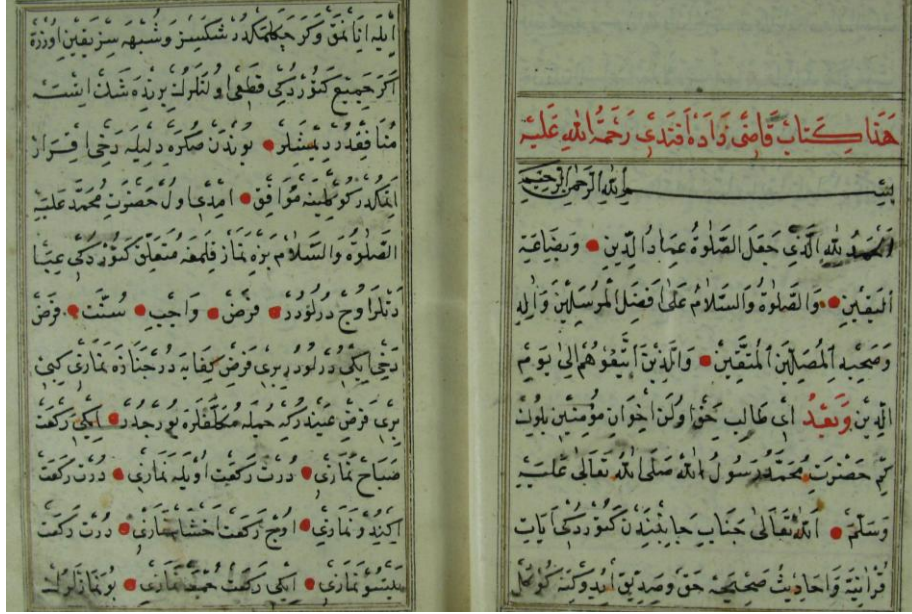 هَذَا كِتَابْ قَاضِى زَادَهْ اَفَنْدِى رَحْمَةُ اللهِ عَلَيْهِ
بِسْمِ اللهِ الرَّحْمٰنِ الرَّحِيمِ
اَلْحَمْدُ لِلّٰهِ الَّذِى جَعَلَ الصَّلٰوةَ عِمَادَ الدِّينِ وَبِضَاعَةَ
الْيَقِينِ وَالصَّلٰوةُ وَالسَّلَامُ عَلَى اَفْضَلِ الْمُرْسَلِينَ وَاٰلِهِ
وَصَحْبِهِ الْمُصَلِّينَ الْمُتَّقِينَ وَالَّذِينَ اتَّبَعُوهُمْ اِلٰى يَوْمِ
الدِّينِ وَبَعْدُ اَىْ طَالِبِ حَقْ اُولَنْ اِخْوَانِ مُؤْمِنِينْ بِلُوكْ
كِمْ حَضْرَتِ مُحَمَّدْ رَسُولُ اللهْ صَلَّى اللهُ تَعَالٰى عَلَيْهِ
وَسَلَّمْ اَللهُ تَعَالٰى جَنَابِ جَانِبِنْدَنْ كَتُورْدُكِى اٰيَاتِ
قُرْاٰنِيَّةَ وَاَحَادِيثِ صَحِيحَه حَقْ وَصِدِيقْ اِيدُوكِنَه كُوكُلْ
اِيلَه اِنَانْمَقْ وَكَرْچَكْلَمَكْدُرْ شَكْسِزْ وَشُبْهَه سِزْ يَقِينْ اُوزَرَهْ
اَكَرْ جَمِيعِ كَتُورْدُكِى قَطْعِى اُولَنْلَرُكْ بِرِنْدَه شَكْ اِيتْسَه
مُنَافِقْدُرْ دِيمِشْلَرْ بُونْدَنْ صُكْرَه دِلِيلَه دَخِى اِقْرَارْ
اِيتْمَكْدُرْ كُوكْلِينَه مُوَافِقْ اِمْدِى اُولْ حَضْرَتِ مُحَمَّدْ عَلَيْهِ
الصَّلٰوةُ وَالسَّلَامْ بِزَه نَمَازْ قِلْمَغَه مُتَعَلِّقْ كَتُورْدُكِى عِبَا
دَتْلَرْ اُوچْ دُرْلُودُرْ فَرْضْ وَاجِبْ سُنَّتْ فَرْضْ
دَخِى اِيكِى دُرْلُودُرْ بِرِى فَرْضِ كِفَايَه دُرْ جَنَازَه نَمَازِى كِبِى
بِرِى فَرْضِ عَيْنْدُرْكِه جُمْلَه مُكَلَّفْلَرَه بُورْجْدُرْ اِيكِى رَكْعَتْ
صَبَاحْ نَمَازِى دُرْتْ رَكْعَتْ اُويْلَه نَمَازِى دُرْتْ رَكْعَتْ
اِكِنْدُو نَمَازِى اُوچْ رَكْعَتْ اَخْشَامْ نَمَازِى دُرْتْ رَكْعَتْ
يَتْسُو نَمَازِى اِيكِى رَكْعَتْ جُمْعَه نَمَازِى بُو نَمَازْلَرُكْ